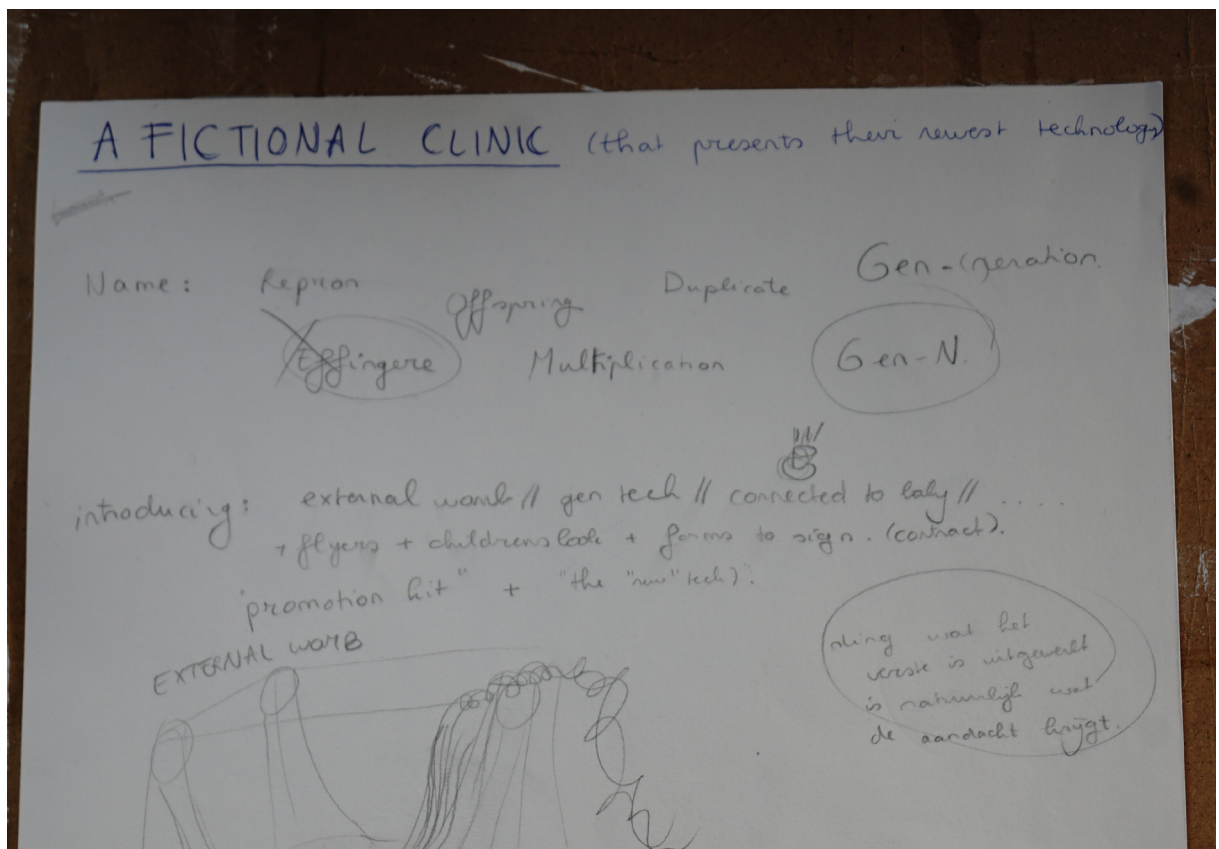 A FICTIONAL CLINIC (that presents their newest technology)
Name: Repron Offspring Duplicate Gen-(neration.
Effingere Multiplication Gen-N.
introducing: external womb // gen tech // connected to baby // .....
+ flyers + childrens book + forms to sign. (contract).
"promotion kit" + "the "new" tech)".
EXTERNAL WOMB
wat het
verste is uitgewerkt
is natuurlijk wat
de aandacht krijgt.